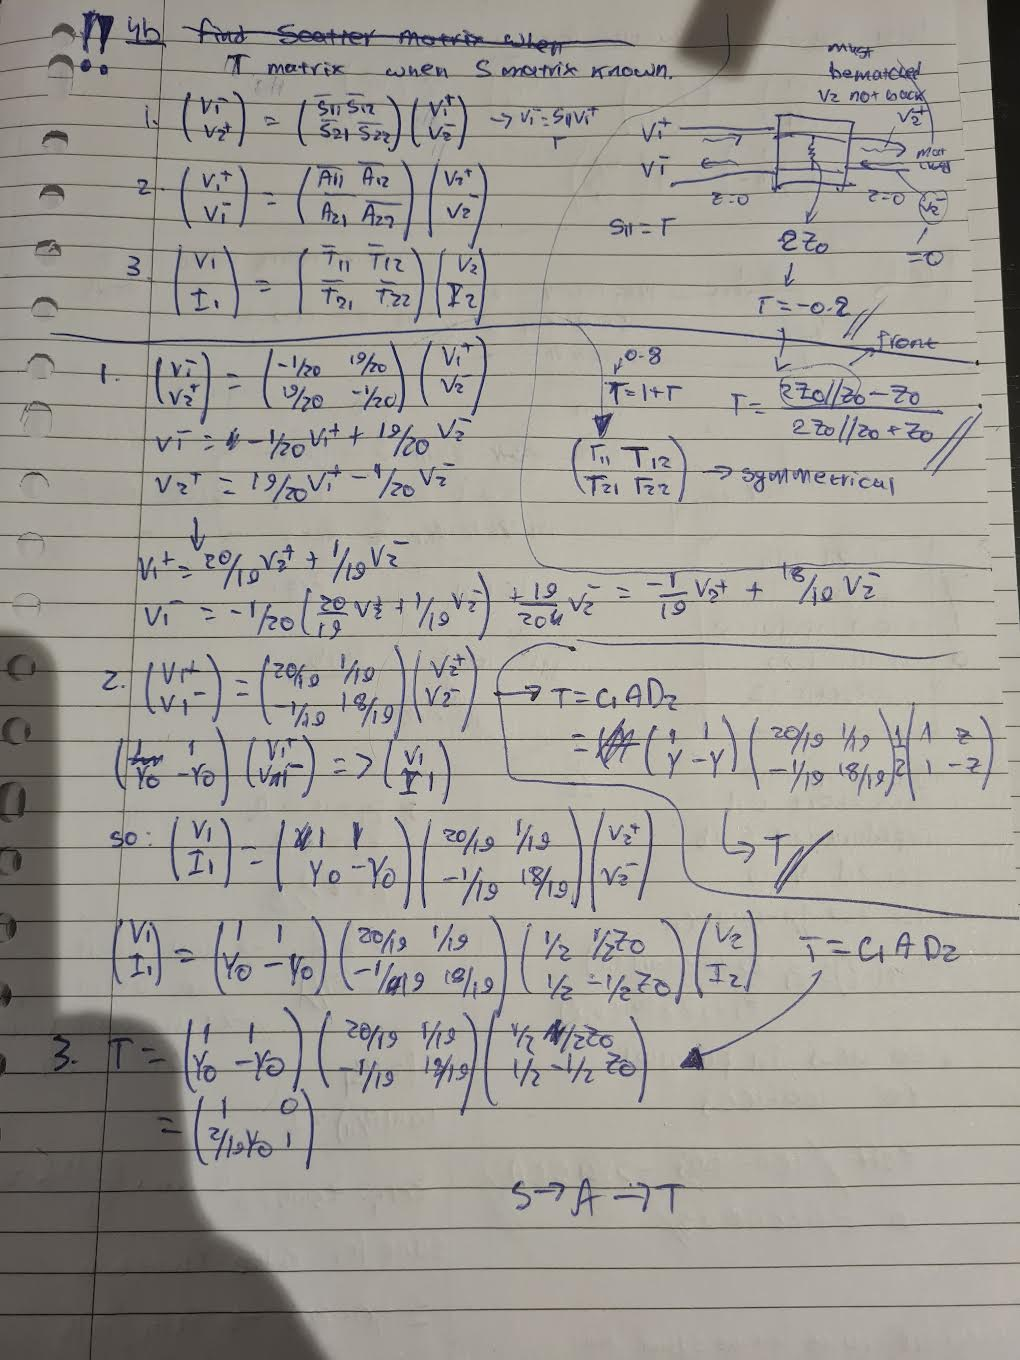 !! 4b find Scatter matrix when
T matrix when S matrix known.
must
be matched
V2 not back
1. (V1⁻ V2⁺) = (S̅11 S̅12 S̅21 S̅22) (V1⁺ V2⁻) → V1⁻ = S11V1⁺
Γ
V1⁺
V1⁻
V2⁺
V2⁻
z=0
z=0
=0
S11 = Γ
2Z0
Γ = -0.2 //
2. (V1⁺ V1⁻) = (A̅11 A̅12 A̅21 A̅22) (V2⁺ V2⁻)
3. (V1 I1) = (T̅11 T̅12 T̅21 T̅22) (V2 I2)
front
Γ = (2Z0//Z0 - Z0) / (2Z0//Z0 + Z0) //
0.8
T = 1+Γ
(Γ11 T12 T21 Γ22) → symmetrical
1. (V1⁻ V2⁺) = (-1/20 19/20 19/20 -1/20) (V1⁺ V2⁻)
V1⁻ = -1/20 V1⁺ + 19/20 V2⁻
V2⁺ = 19/20 V1⁺ - 1/20 V2⁻
↓
V1⁺ = 20/19 V2⁺ + 1/19 V2⁻
V1⁻ = -1/20 (20/19 V2⁺ + 1/19 V2⁻) + 19/20 V2⁻ = -1/19 V2⁺ + 18/19 V2⁻
2. (V1⁺ V1⁻) = (20/19 1/19 -1/19 18/19) (V2⁺ V2⁻) → T = C1AD2
= (1 1 Y -Y) (20/19 1/19 -1/19 18/19) 1/2 (1 Z 1 -Z)
↳ T //
(1 1 Y0 -Y0) (V1⁺ V1⁻) => (V1 I1)
so: (V1 I1) = (1 1 Y0 -Y0) (20/19 1/19 -1/19 18/19) (V2⁺ V2⁻)
(V1 I1) = (1 1 Y0 -Y0) (20/19 1/19 -1/19 18/19) (1/2 1/2Z0 1/2 -1/2Z0) (V2 I2) T̅ = C1AD2
3. T = (1 1 Y0 -Y0) (20/19 1/19 -1/19 18/19) (1/2 1/2Z0 1/2 -1/2 Z0)
= (1 0 2/19Y0 1)
S → A → T